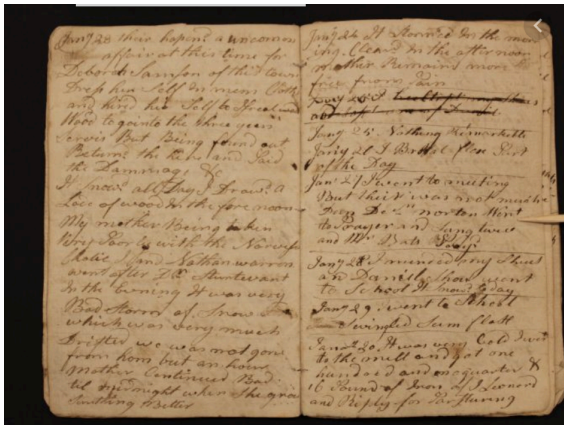 Jany 23 their hapend a uncomm
affair at this time for
Deborah Samson of this town
Dress her Self in mens Cloths
and hired her Self to Israel
Wood to go into the three years
Servis But Being found out
Returnd the hire and paid
the Damages &c
It snow all Day I Draw a
Loss of wood in the fore noon
My mother Being taken
Very Poor is with the Nervous
and Nathan warren
went after Dr Sturtevant
In the Evening It was very
Bad Storm of Snow
which was very much
Drifted we was not gone
from hom but an hour
Mother Continued Bad
til midnight when She grew
Sumthing Better
Jany 24 It Stormed In the morn
ing Cleard In the afternoon
mother Remains more
free from Pain
Jany 25 Nothing Remarkable
Jany 26 I Part
of the Day
Jany 27 I went to meeting
But their was not much
Norton Went
to prayer and Sung twice
and Mr Bats
Jany 28 I mended my Shoes
and Daniell Shaw went
to School It Snow to day
Jany 29 I went to School
Swingled Sum flax
It was very Cold I went
to the mill and got one
hundred and one quarter &
16 Pound of Iron of Leonard
and Ripley for